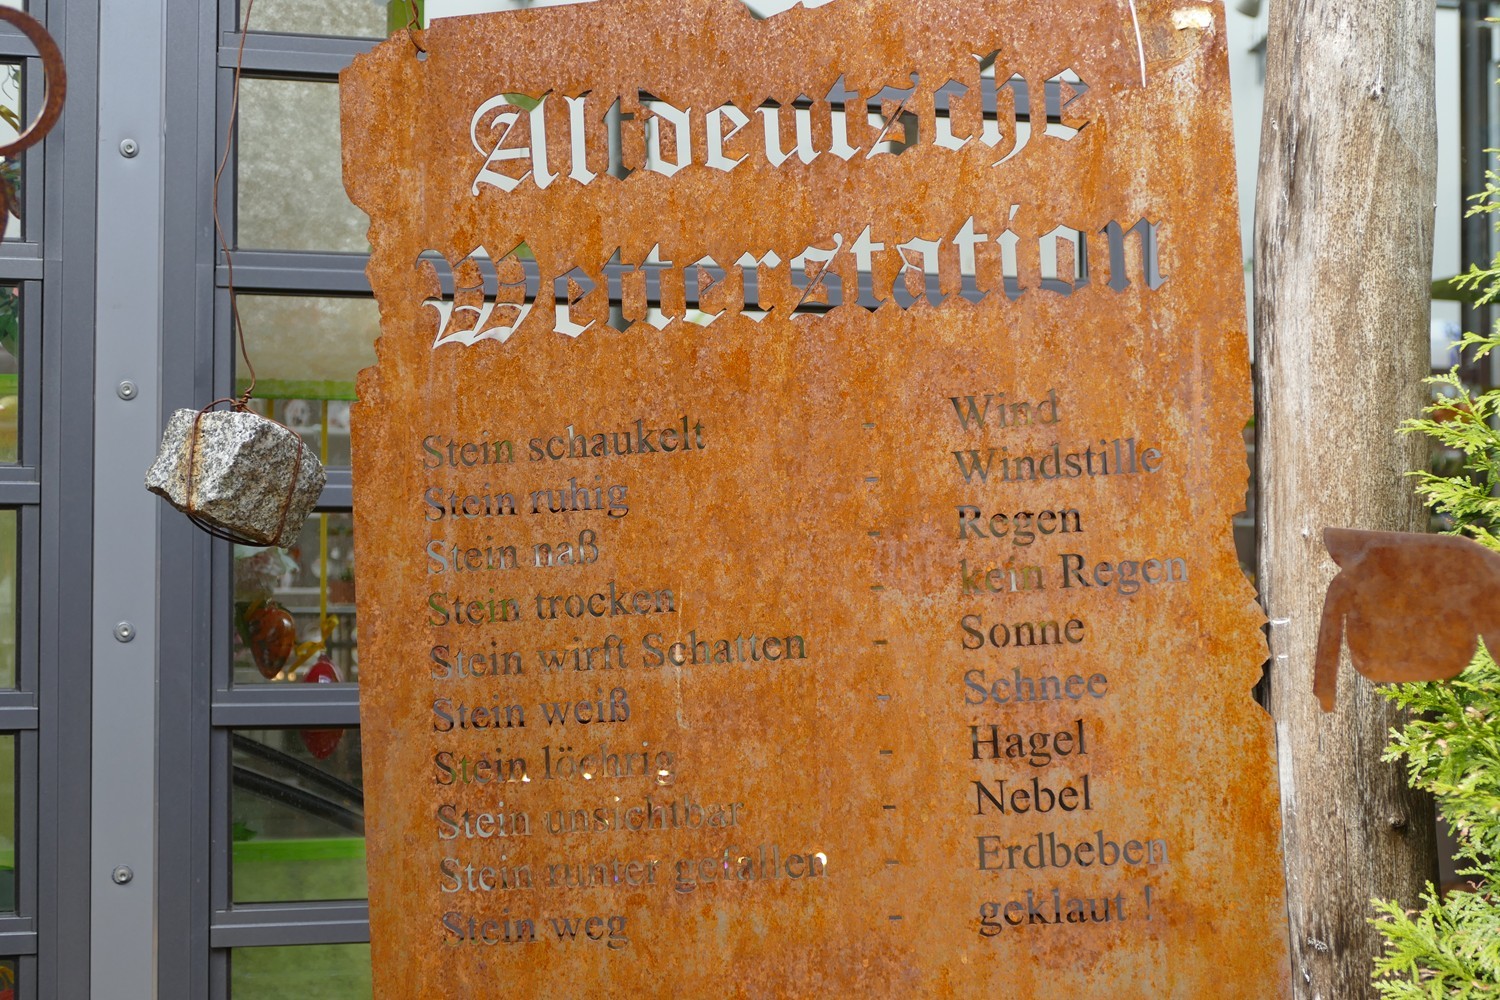 Altdeutsche
Wetterstation
Stein schaukelt - Wind
Stein ruhig - Windstille
Stein naß - Regen
Stein trocken - kein Regen
Stein wirft Schatten - Sonne
Stein weiß - Schnee
Stein löchrig - Hagel
Stein unsichtbar - Nebel
Stein runter gefallen - Erdbeben
Stein weg - geklaut !